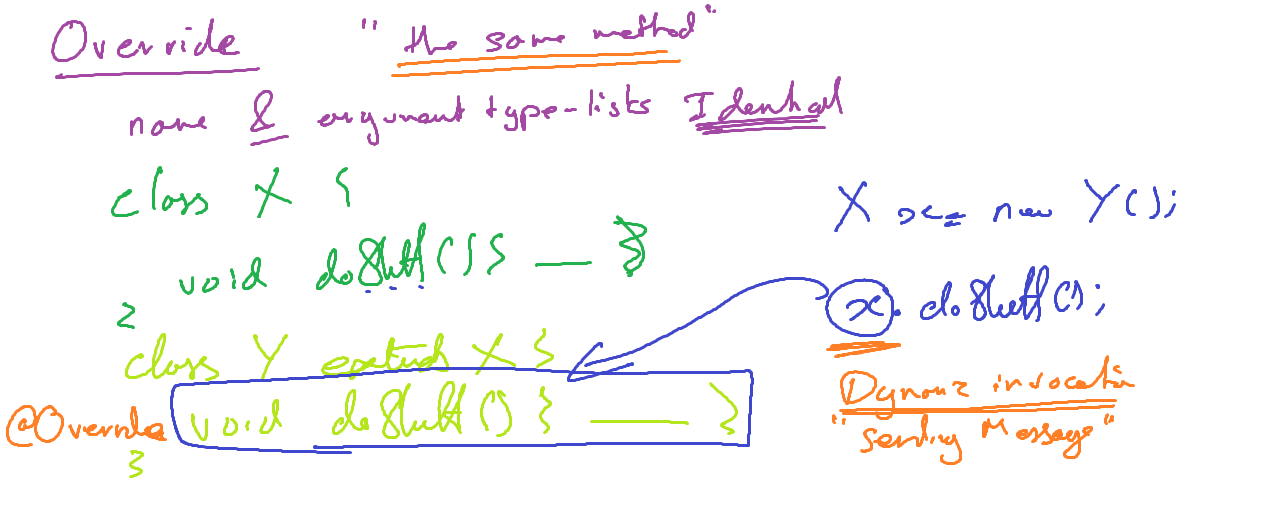 Override "the same method"
name & argument type-lists Identical
class X {
void doStuff() { — }
}
class Y extends X {
@Override void doStuff() { — }
}
X x = new Y();
x. doStuff();
Dynamic invocation
"Sending Message"